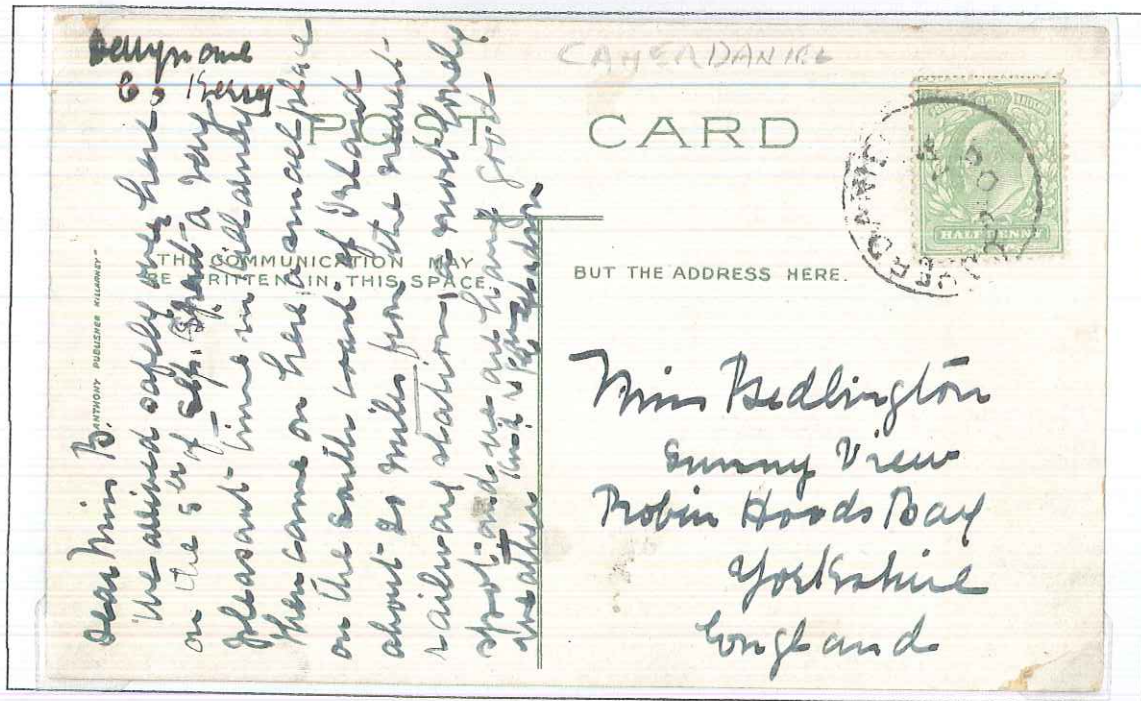 CAHERDANIEL
POST CARD
THE COMMUNICATION MAY
BE WRITTEN IN THIS SPACE,
BUT THE ADDRESS HERE.
HALF PENNY
ANTHONY PUBLISHER KILLARNEY
Derrynane
Co Kerry
Dear Miss B.
We arrived safely over here
on the 5th of Sep. Spent a very
pleasant time in
then came on here a small place
on the south coast of Ireland
about 20 miles from the nearest
railway station, a most lovely
spot and we are having good
weather
Miss Bedlington
Sunny View
Robin Hoods Bay
Yorkshire
England